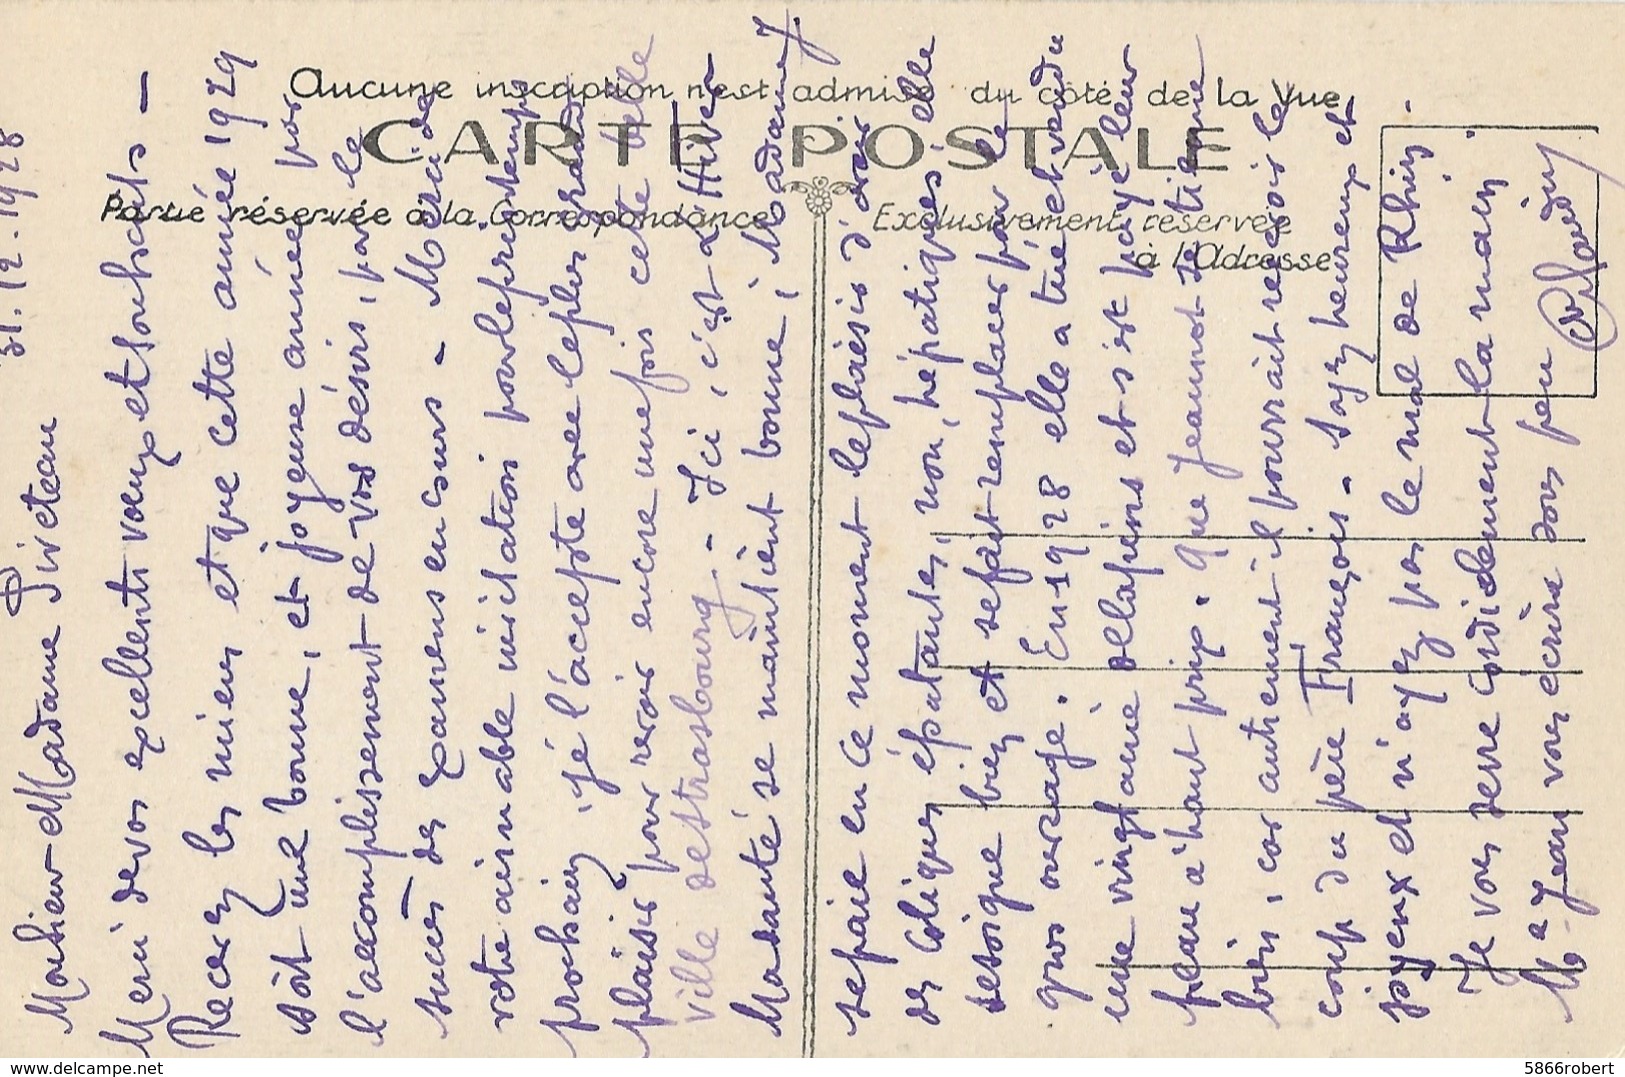 Aucune inscription n'est admise du côté de la Vue
CARTE POSTALE
Partie réservée à la Correspondance
Exclusivement réservée
à l'Adresse
31.12.1928
Monsieur et Madame Piveteau
Merci de vos excellents voeux et souhaits -
Recevez les miens et que cette année 1929
soit une bonne, et joyeuse année par
l'accomplissement de vos désirs, par le
succès des examens en cours - Merci de
votre aimable invitation pour le printemps
prochain, je l'accepte avec le plus grand
plaisir pour revoir encore une fois cette belle
ville de Strasbourg. - Ici, c'est l'Hiver
Ma santé se maintient bonne, Madame J.
se paie en ce moment le plaisir d'avoir
des coliques épatantes, non, hépatiques, elle
se soigne bien et se fait remplacer pour le
gros ouvrage. En 1928 elle a tué et vendu
une vingtaine de lapins et s'est payé leur
peau à haut prix. que Jeannot se tienne
bien, car autrement il pourrait recevoir le
coup du père François - Soyez heureux et
joyeux et n'ayez pas le mal de Rhin.
Je vous serre cordialement la main
Me Jean vous écrira sous peu
5866robert